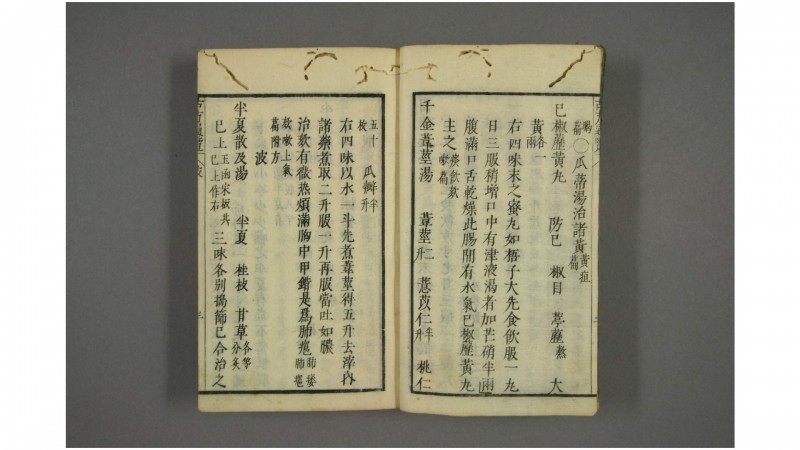 暍篇○瓜蒂湯治諸黃黃疸篇
已椒藶黃丸 防已 椒目 葶藶熬 大
黃各一兩
右四味末之蜜丸如梧子大先食飲服一丸
日三服稍增口中有津液渴者加芒硝半兩
腹滿口舌乾燥此腸間有水氣已椒藶黃丸
主之痰飲欬嗽篇
千金葦莖湯 葦莖二升 薏苡仁半升 桃仁
五十枚 瓜瓣半升
右四味以水一斗先煮葦莖得五升去滓內
諸藥煮取二升服一升再服當吐如膿
治欬有微熱煩滿胸中甲錯是為肺癰肺痿肺癰
欬嗽上氣篇附方
波
半夏散及湯 半夏 桂枝 甘草各等分炙
已上玉函宋板共已上作右三味各別搗篩已合治之